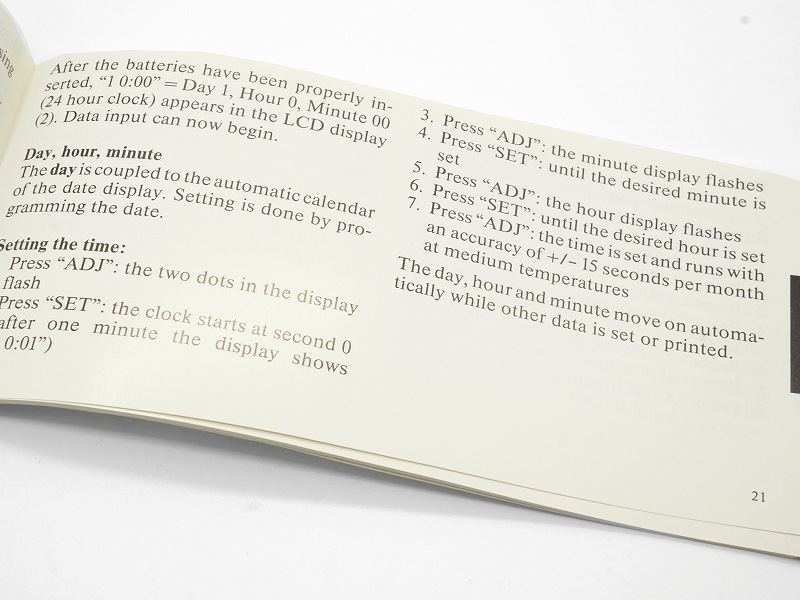 sing
After the batteries have been properly in-
serted, “1 0:00” = Day 1, Hour 0, Minute 00
(24 hour clock) appears in the LCD display
(2). Data input can now begin.
Day, hour, minute
The day is coupled to the automatic calendar
of the date display. Setting is done by pro-
gramming the date.
Setting the time:
Press “ADJ”: the two dots in the display
flash
Press “SET”: the clock starts at second 0
after one minute the display shows
0:01”)
3. Press “ADJ”: the minute display flashes
4. Press “SET”: until the desired minute is
set
5. Press “ADJ”: the hour display flashes
6. Press “SET”: until the desired hour is set
7. Press “ADJ”: the time is set and runs with
an accuracy of +/– 15 seconds per month
at medium temperatures
The day, hour and minute move on automa-
tically while other data is set or printed.
21